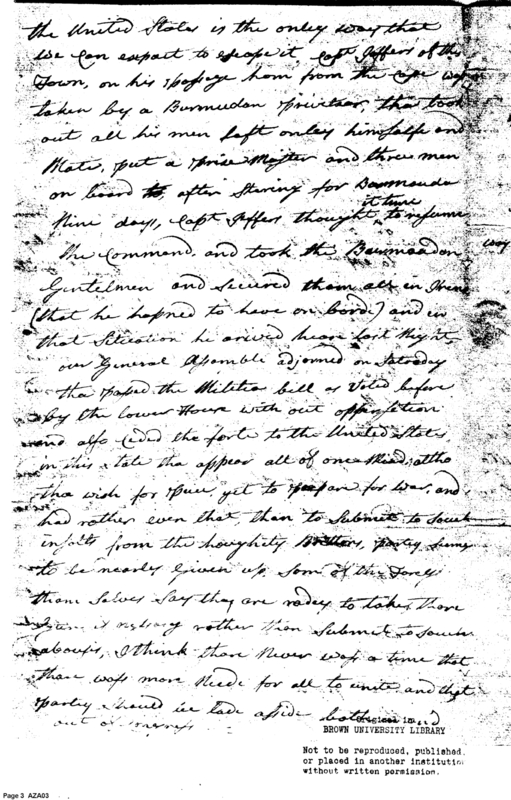 the United States is the onley way that
we can expect to escape it, Capt Jeffers of this
Town, on his passage hom from the Cape was
taken by a Burmudan privitear, tha took
out all his men laft onley himsalfe and
Mate, put a prise Master and three men
on board after Staring for Barmuda
Nine days, Capt Jeffers thought it time to resume
the Command, and took the Barmaadon
Gentelmen and secured them all in Irons
(that he hapned to have on bord) and in
that Situation he arived hear last Night,
our General Assamble adjorned on Satraday
tha passed the Militia bill as Voted before
by the lower House with out oppersetion
and also Ceded the forts to the United States,
in this State tha appear all of one Mind, altho
tha wish for peace, yet to prepare for War, and
had rather even that, than to Submit to Such
insalts from the houghity party seems
to be nearly given up, Som of the Toreys
tham Salves Say they are radey to take there
rather than Submit to Such
abouses, I think thare Never wass a time that
thare wass more Neede for all to unite and that
party should be lade asside both in
out of
Original in
BROWN UNIVERSITY LIBRARY
Not to be reproduced, published,
or placed in another institution
without written permission.
Page 3 AZA03